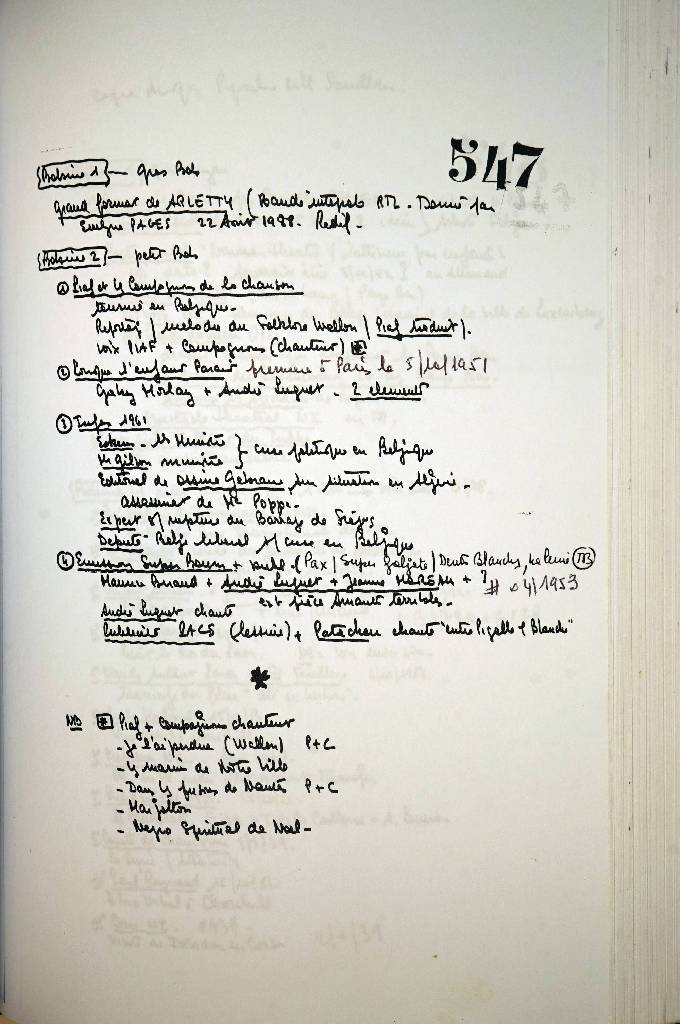 547
Bobine 1 — gros Bob
Grand format de ARLETTY (Bande intégrale RTL. Donné par
Evelyne PAGES 22 Août 1988. Redif.
Bobine 2 — petit Bob
① Piaf et les Compagnons de la chanson
tournée en Belgique.
Reportage / mélodie du Folklore Wallon / Piaf traduit).
voix PIAF + Compagnons (chantent) #
② Lorsque l'enfant Parait première à Paris le 5/10/1951
Gaby Morlay + André Luguet. 2 éléments
③ Infos 1961
Eskens. 1er Ministre } crise politique en Belgique
Mr Gilson ministre }
Editorial de sur situation en Algérie.
assassinat de Me Popp.
Expert s/ rupture du Barrage de Fréjus
Député Belge libéral s/ crise en Belgique
④ Emission Super Boum + publ (Pax / Super / Dents Blanches, (TB)
+ André Luguet + Jeanne MOREAU + ? # 04/1953
est pièce Amants terribles.
André Luguet chante
PACS (lessive) + Patachou chante "entre Pigalle & Blanche"
*
NB # Piaf + Compagnons chantent
- Je l'ai perdue (Wallon) P+C
- le marin de Notre Ville
- Dans les prisons de Nantes P+C
- Margoton
- Negro Spiritual de Noel-